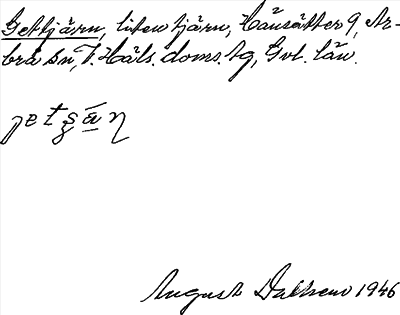 Gettjärn, liten tjärn, Hänsätter 9, Ar-
brå sn, V. Häls. doms. tg, Gvl. län.
August Dalhem 1946